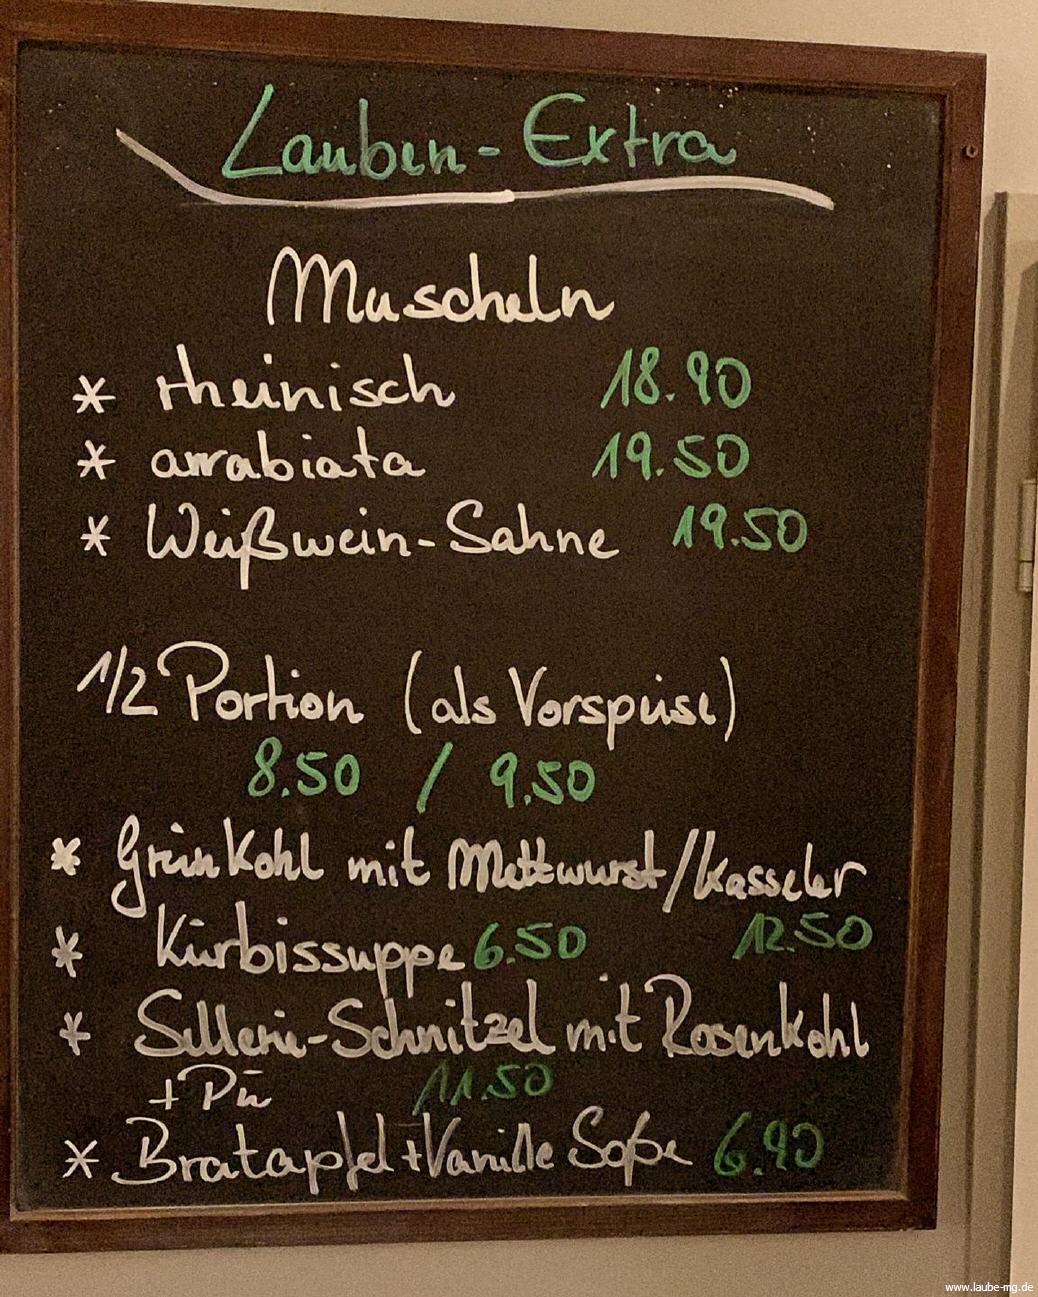 Lauben-Extra
Muscheln
* rheinisch 18.90
* arrabiata 19.50
* Weißwein-Sahne 19.50
1/2 Portion (als Vorspeise)
8.50 / 9.50
* Grünkohl mit Mettwurst/Kasseler
12.50
* Kürbissuppe 6.50
* Sellerie-Schnitzel mit Rosenkohl
+ Pü 11.50
* Bratapfel + Vanille Soße 6.90
www.laube-mg.de